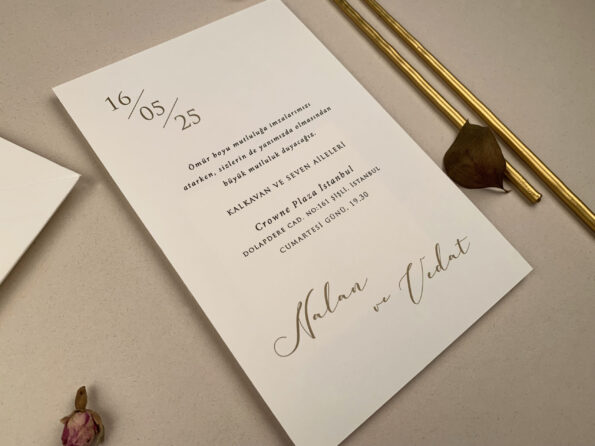 16/05/25
Ömür boyu mutluluğa imzalarımızı
atarken, sizlerin de yanımızda olmasından
büyük mutluluk duyacağız.
KALKAVAN VE SEVEN AİLELERİ
Crowne Plaza İstanbul
DOLAPDERE CAD. NO:161 ŞİŞLİ, İSTANBUL
CUMARTESİ GÜNÜ, 19.30
Nalan
ve Vedat